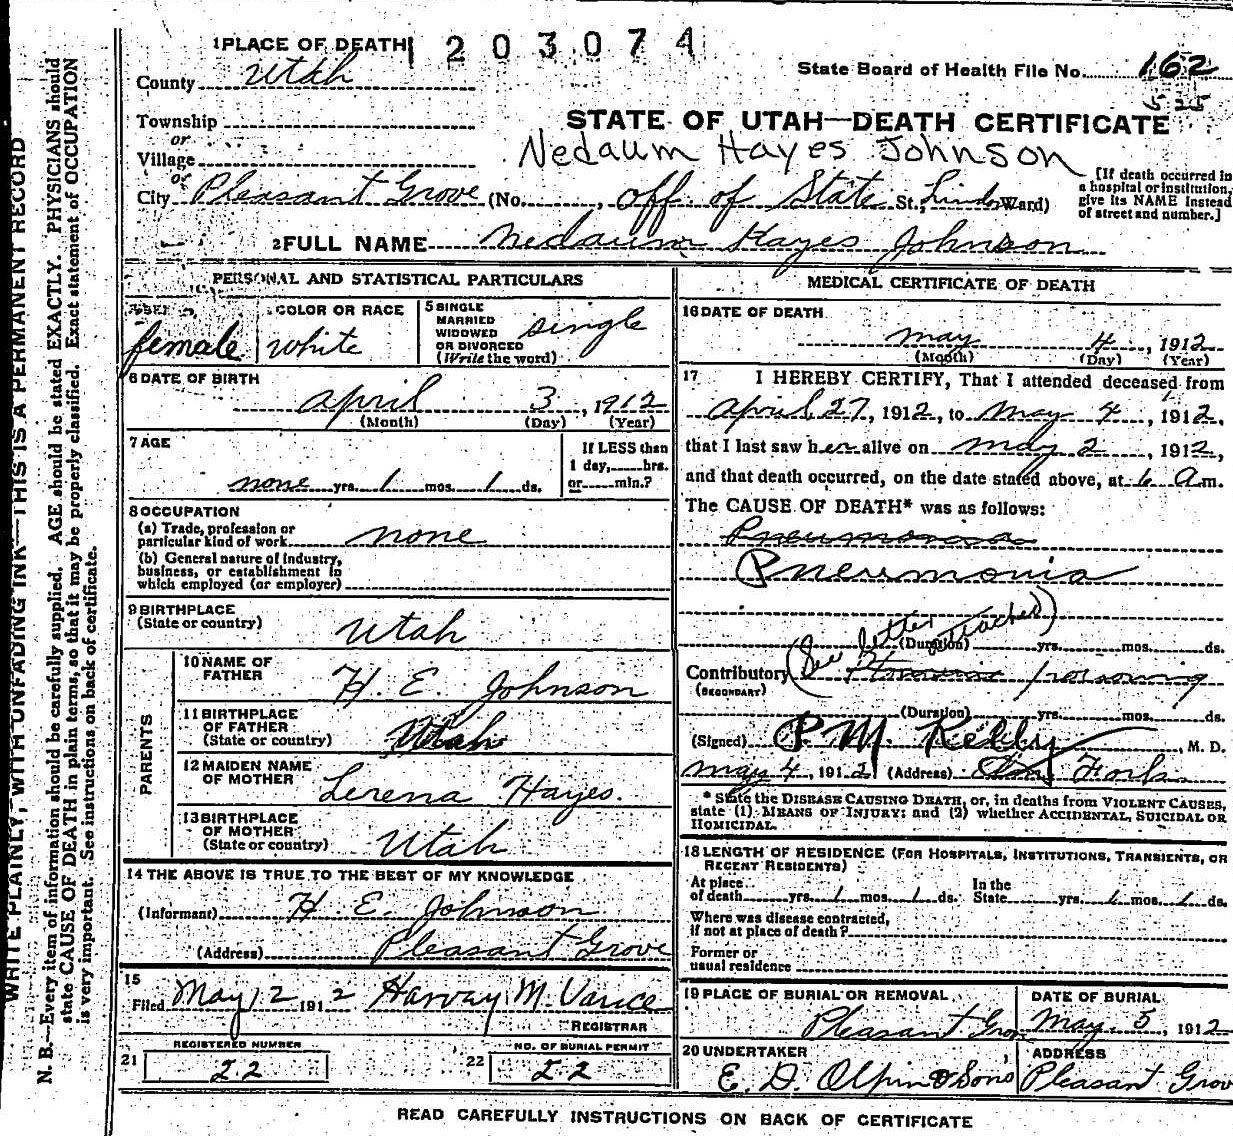 1 PLACE OF DEATH 1203074
County Utah
State Board of Health File No. 162
525
Township
or
Village
or
STATE OF UTAH—DEATH CERTIFICATE
Nedaum Hayes Johnson
City Pleasant Grove (No. , off of State St., Ward)
[If death occurred in a hospital or institution, give its NAME instead of street and number.]
2 FULL NAME Nedaum Hayes Johnson
PERSONAL AND STATISTICAL PARTICULARS
SEX
female
COLOR OR RACE
white
5 SINGLE
MARRIED
WIDOWED
OR DIVORCED
(Write the word)
single
6 DATE OF BIRTH
April 3, 1912
(Month) (Day) (Year)
7 AGE
none yrs. 1 mos. 1 ds.
If LESS than
1 day, hrs.
or min.?
8 OCCUPATION
(a) Trade, profession or
particular kind of work none
(b) General nature of industry,
business, or establishment in
which employed (or employer)
9 BIRTHPLACE
(State or country)
Utah
PARENTS
10 NAME OF
FATHER
H. E. Johnson
11 BIRTHPLACE
OF FATHER
(State or country)
Utah
12 MAIDEN NAME
OF MOTHER
Lerena Hayes.
13 BIRTHPLACE
OF MOTHER
(State or country)
Utah
14 THE ABOVE IS TRUE TO THE BEST OF MY KNOWLEDGE
(Informant) H. E. Johnson
(Address) Pleasant Grove
15
Filed May 12 1912 Harvay M. Vance
REGISTRAR
REGISTERED NUMBER
21 22
NO. OF BURIAL PERMIT
22 22
MEDICAL CERTIFICATE OF DEATH
16 DATE OF DEATH
May 4, 1912
(Month) (Day) (Year)
17 I HEREBY CERTIFY, That I attended deceased from
April 27, 1912, to May 4, 1912,
that I last saw her alive on May 2, 1912,
and that death occurred, on the date stated above, at 6 A m.
The CAUSE OF DEATH* was as follows:
Pneumonia
Pneumonia
(Duration) yrs. mos. ds.
(See letter attached)
Contributory Ptomaine poisoning
(SECONDARY)
(Duration) yrs. mos. ds.
(Signed) P M. Kelly, M. D.
May 4, 1912 (Address) Am Fork
* State the DISEASE CAUSING DEATH, or, in deaths from VIOLENT CAUSES,
state (1) MEANS OF INJURY; and (2) whether ACCIDENTAL, SUICIDAL OR
HOMICIDAL.
18 LENGTH OF RESIDENCE (FOR HOSPITALS, INSTITUTIONS, TRANSIENTS, OR
RECENT RESIDENTS)
At place
of death yrs. 1 mos. 1 ds.
In the
State yrs. 1 mos. 1 ds.
Where was disease contracted,
if not at place of death?
Former or
usual residence
19 PLACE OF BURIAL OR REMOVAL
Pleasant Grove
DATE OF BURIAL
May 5, 1912
20 UNDERTAKER
E. D. Olpin & Sons
ADDRESS
Pleasant Grov
READ CAREFULLY INSTRUCTIONS ON BACK OF CERTIFICATE
WRITE PLAINLY, WITH UNFADING INK—THIS IS A PERMANENT RECORD
N. B.—Every item of information should be carefully supplied. AGE should be stated EXACTLY. PHYSICIANS should
state CAUSE OF DEATH in plain terms, so that it may be properly classified. Exact statement of OCCUPATION
is very important. See instructions on back of certificate.